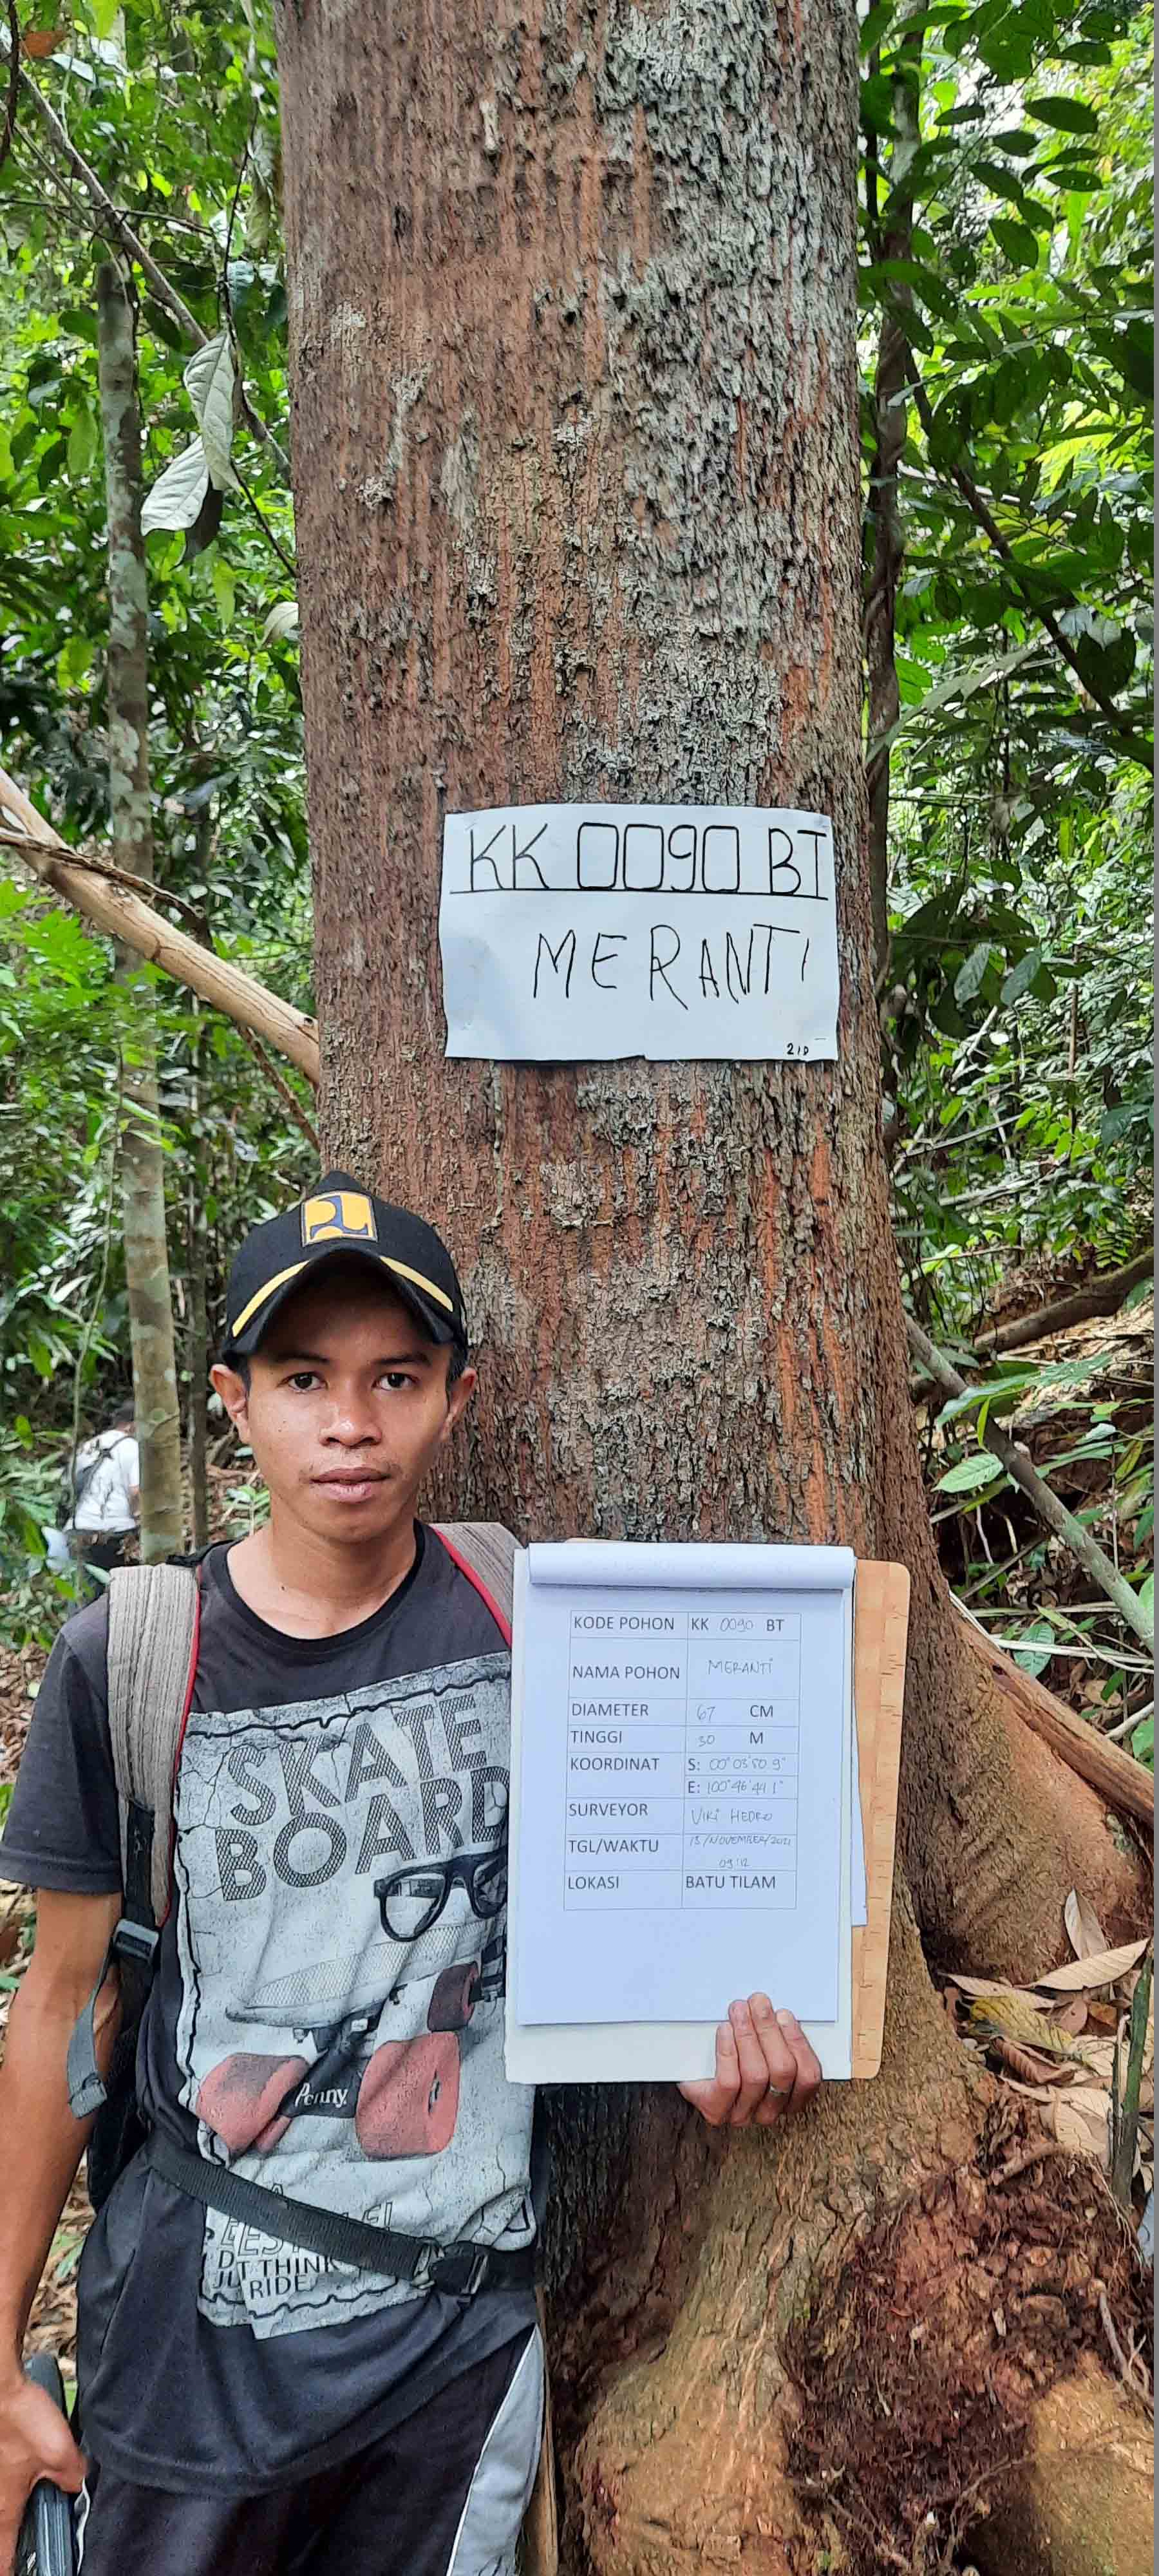 KK 0090 BT
MERANTI
210
KODE POHON KK 0090 BT
NAMA POHON MERANTI
DIAMETER 67 CM
TINGGI 30 M
KOORDINAT S: 00° 03' 50.9"
E: 100° 46' 44.1"
SURVEYOR VIKI HEDRO
TGL/WAKTU 13/NOVEMBER/2021
09:12
LOKASI BATU TILAM
SKATE
BOARD
Penny
THINK
RIDE